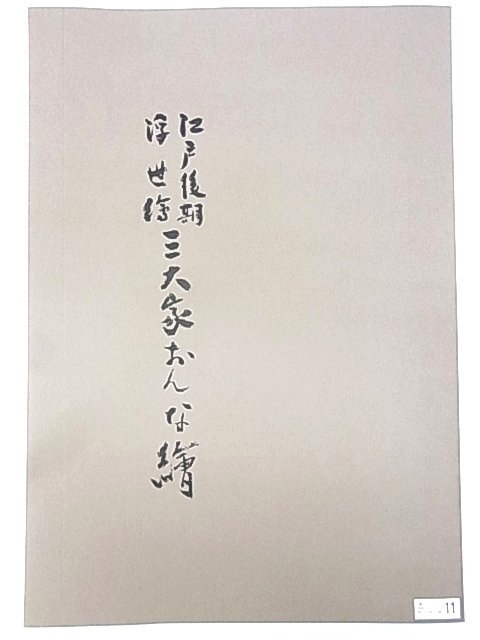 江戸後期
浮世繪
三大家おんな繪
11